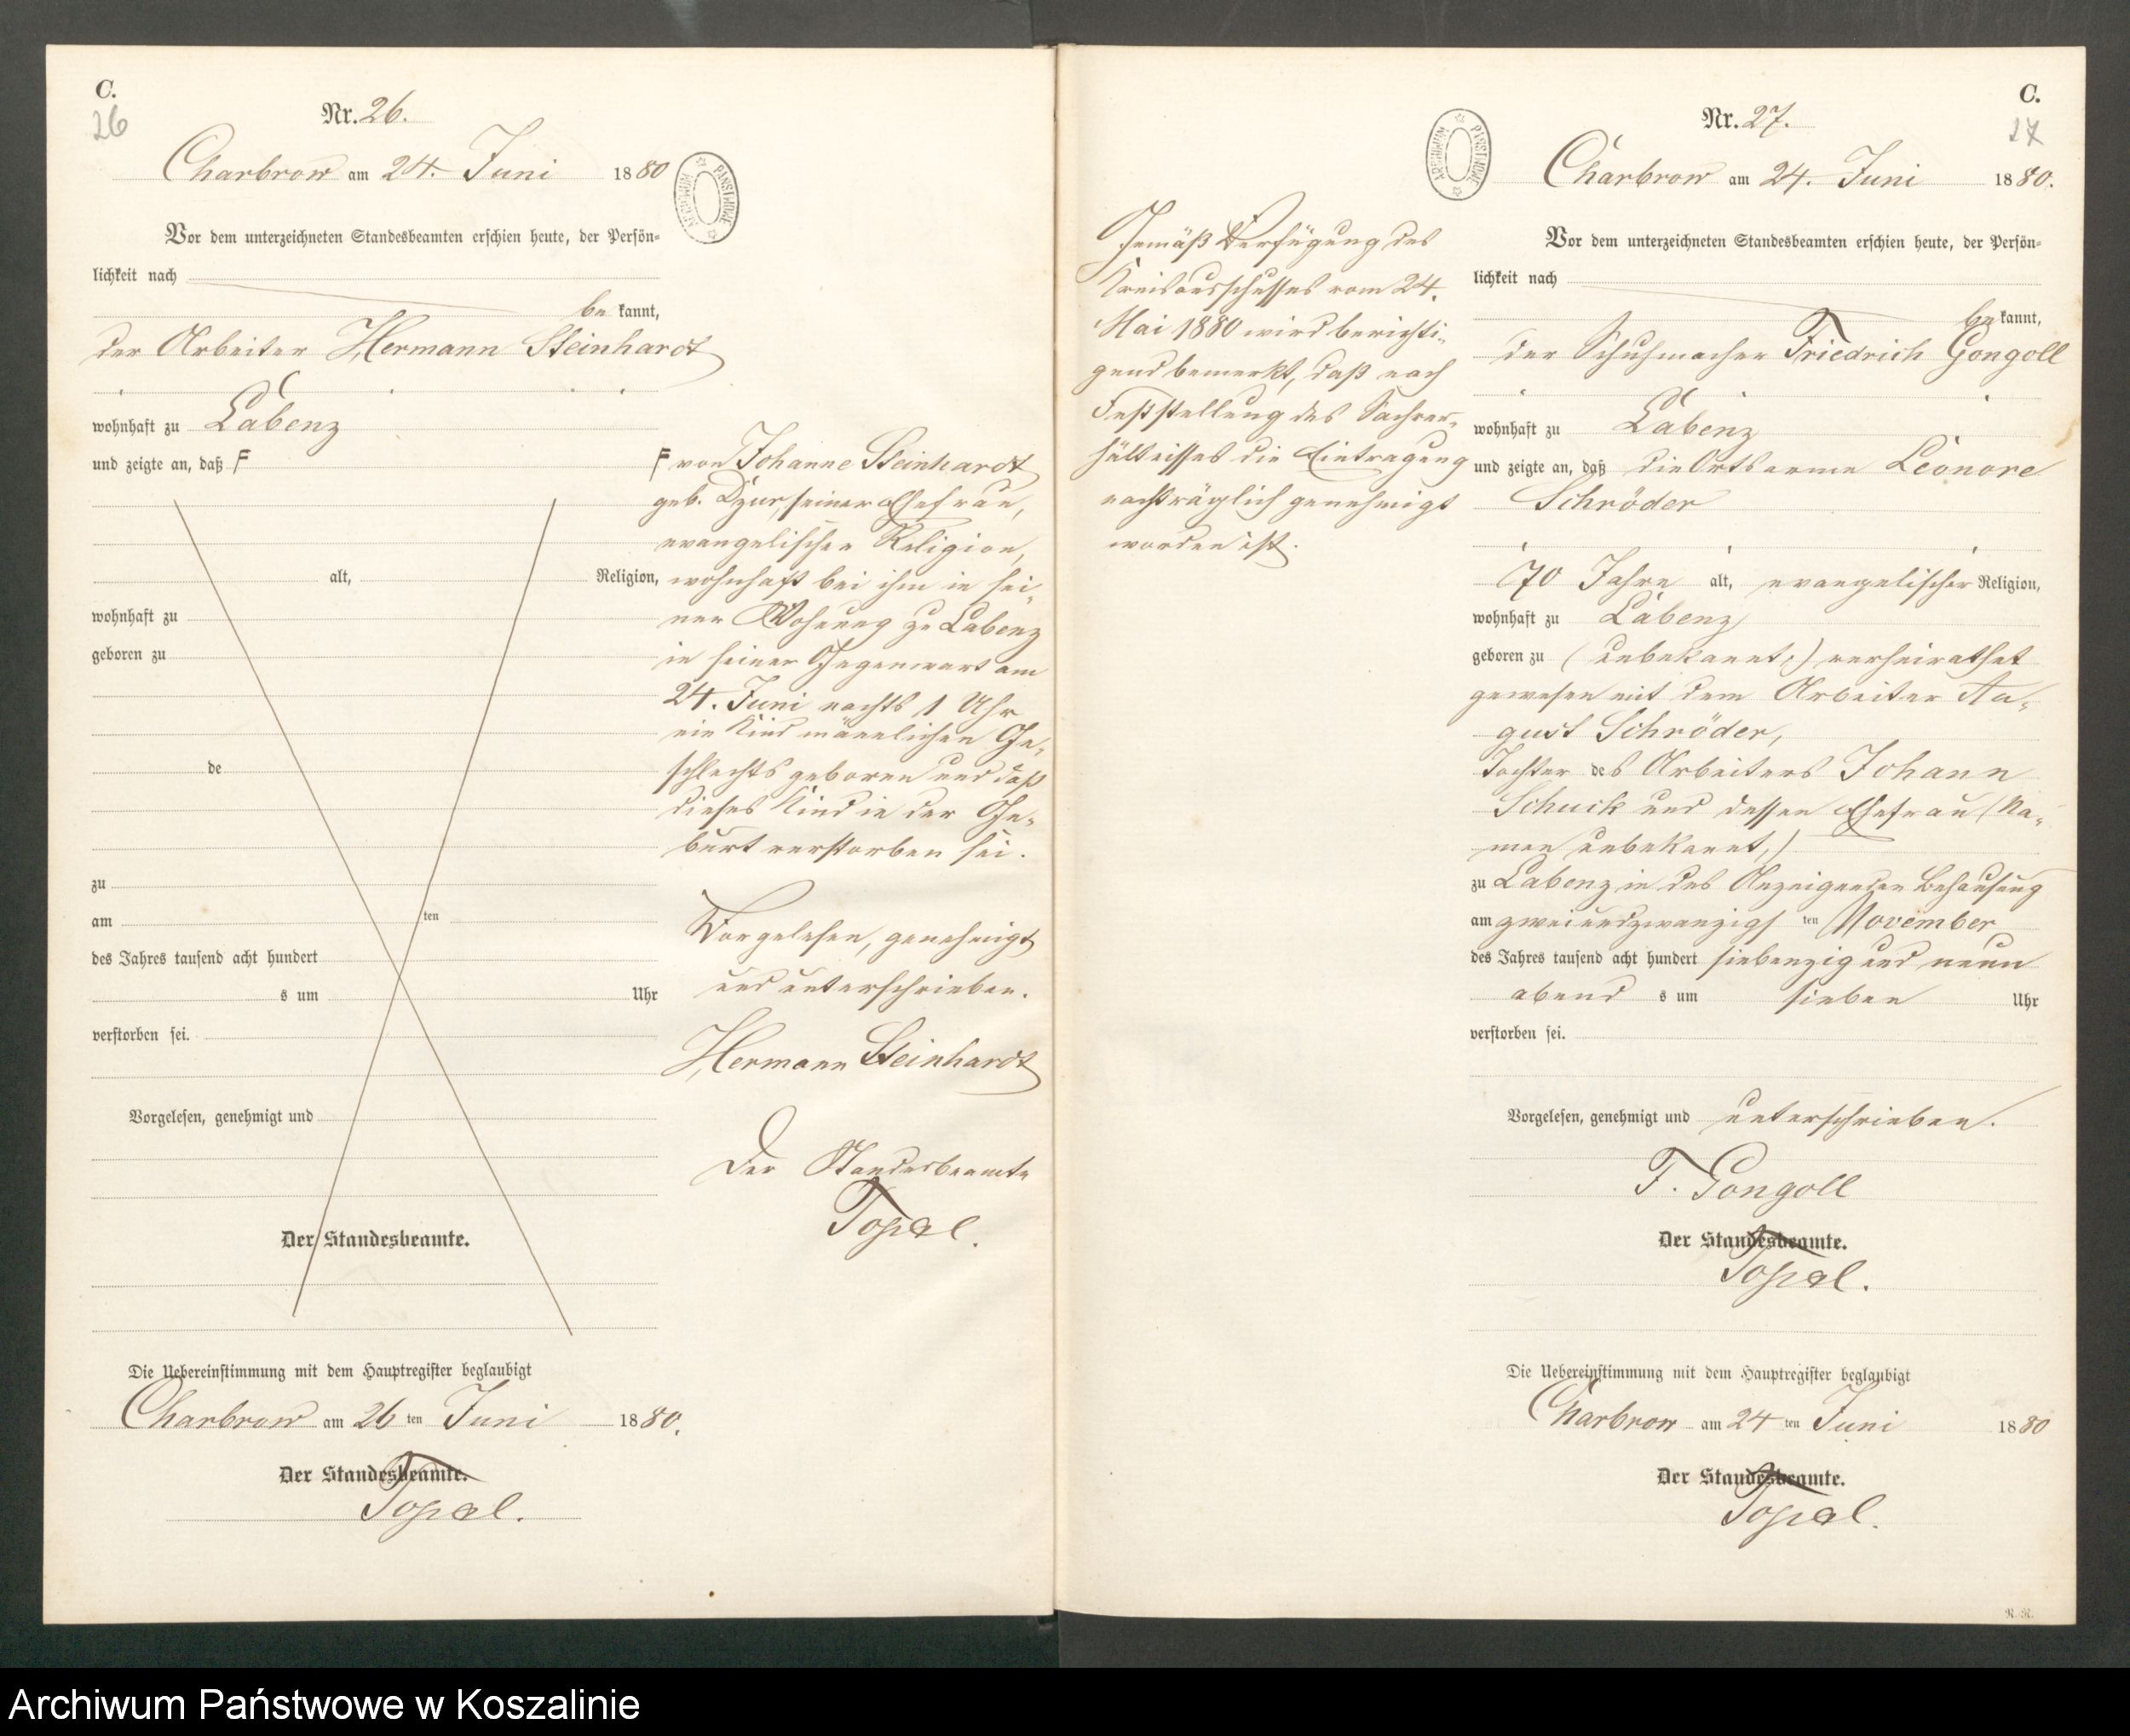 C.
26
Nr. 26.
Charbrow am 24. Juni 1880
Vor dem unterzeichneten Standesbeamten erschien heute, der Persön-
lichkeit nach
be kannt,
der Arbeiter Hermann Steinhardt
wohnhaft zu Labenz
und zeigte an, daß F
alt, Religion,
wohnhaft zu
geboren zu
de
zu
am ten
des Jahres tausend acht hundert
s um Uhr
verstorben sei.
Vorgelesen, genehmigt und
Der Standesbeamte.
Die Uebereinstimmung mit dem Hauptregister beglaubigt
Charbrow am 26 ten Juni 1880.
Der Standesbeamte.
Topel.
ARCHIWUM PAŃSTWOWE
F von Johanne Steinhardt
geb. seiner Ehefrau,
evangelischer Religion,
wohnhaft bei ihm in sei-
ner Wohnung zu Labenz
in seiner Gegenwart am
24. Juni nachts 1 Uhr
ein Kind männlichen Ge-
schlechts geboren und daß
dieses Kind in der Ge-
burt verstorben sei.
Vorgelesen, genehmigt
und unterschrieben.
Hermann Steinhardt
Der Standesbeamte
Topel.
ARCHIWUM PAŃSTWOWE
Gemäß Verfügung des
Kreisausschusses vom 24.
Mai 1880 wird berichti-
gend bemerkt, daß nach
Feststellung des Sachver-
hältnisses die Eintragung
nachträglich genehmigt
worden ist.
C.
27
Nr. 27.
Charbrow am 24. Juni 1880.
Vor dem unterzeichneten Standesbeamten erschien heute, der Persön-
lichkeit nach
be kannt,
der Schuhmacher Friedrich Gongoll
wohnhaft zu Labenz
und zeigte an, daß die Ortsarme Leonore
Schröder
70 Jahre alt, evangelischer Religion,
wohnhaft zu Labenz
geboren zu (unbekannt,) verheirathet
gewesen mit dem Arbeiter Au-
gust Schröder,
Tochter des Arbeiters Johann
Schuck und dessen Ehefrau (Na-
men unbekannt,)
zu Labenz in des Anzeigenden Behausung
am zweiundzwanzigs ten November
des Jahres tausend acht hundert siebenzig und neun
abend s um sieben Uhr
verstorben sei.
Vorgelesen, genehmigt und unterschrieben.
F. Gongoll
Der Standesbeamte.
Topel.
Die Uebereinstimmung mit dem Hauptregister beglaubigt
Charbrow am 24 ten Juni 1880
Der Standesbeamte.
Topel.
R. R.
Archiwum Państwowe w Koszalinie